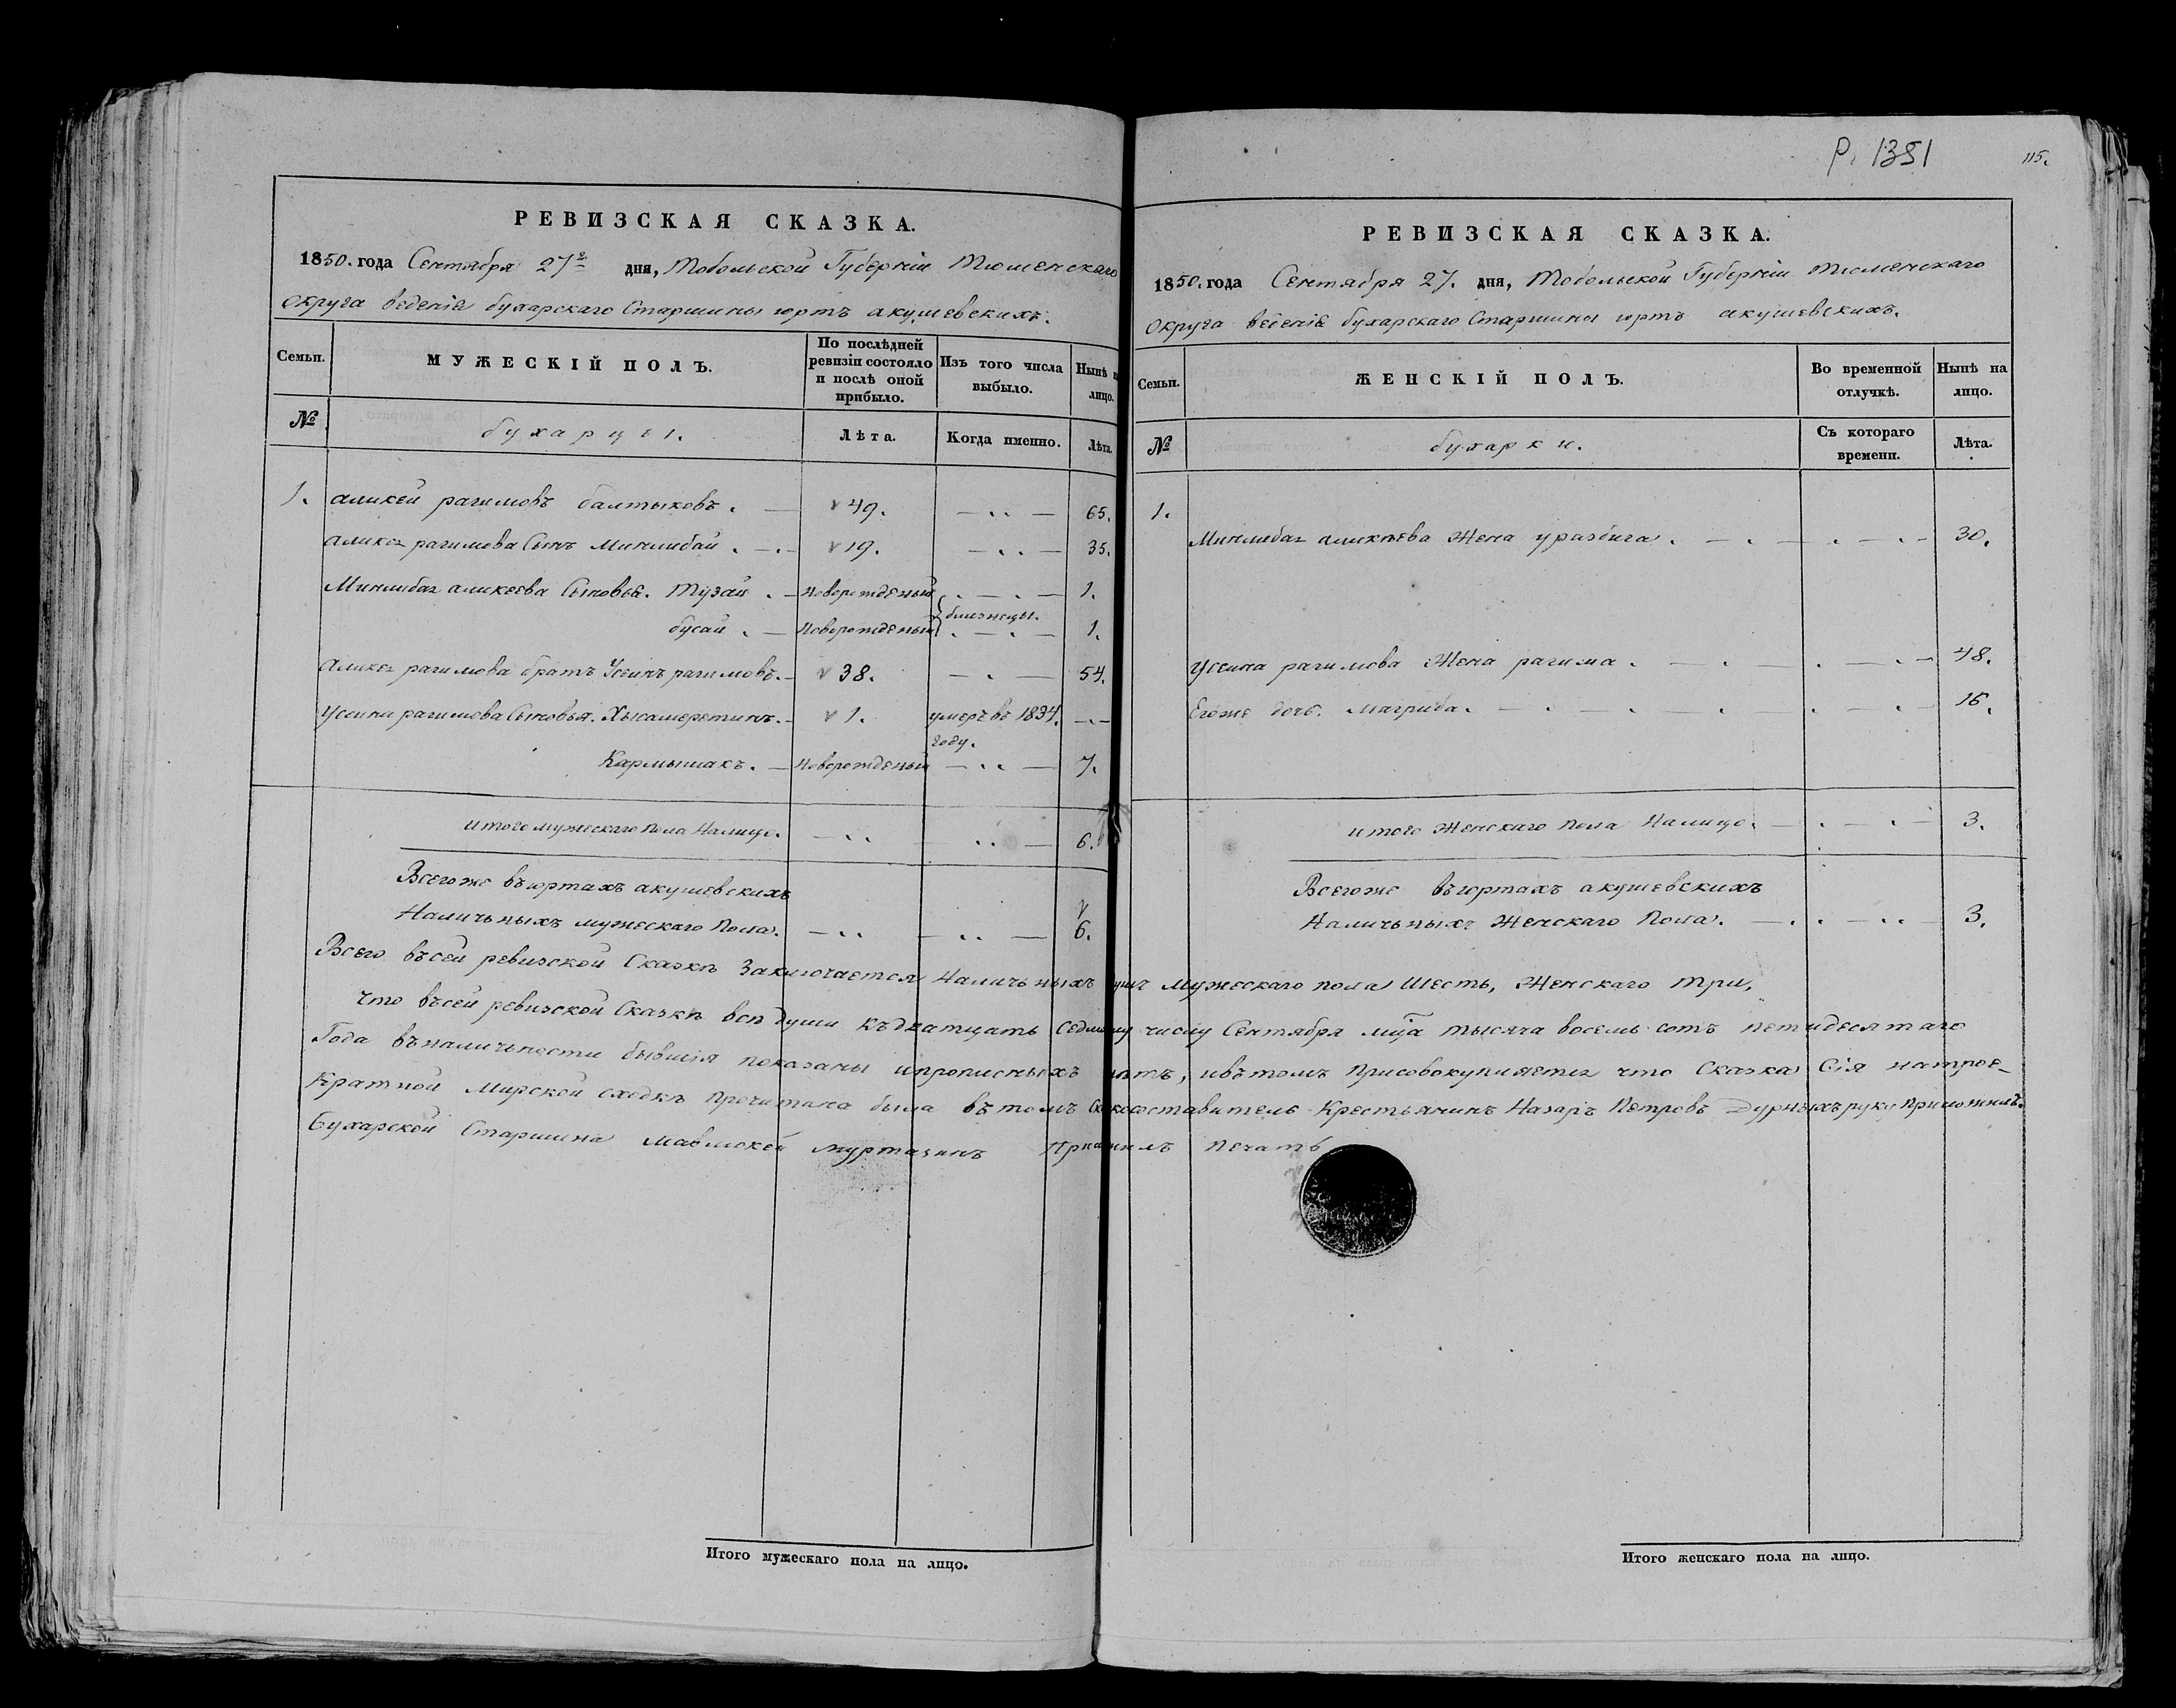 Р. 1351
115.
РЕВИЗСКАЯ СКАЗКА.
1850. года Сентября 27го дня, Тобольской Губерніи Тюменскаго
округа веденія бухарскаго Старшины юртъ акушевскихъ.
Семьи. МУЖЕСКІЙ ПОЛЪ. По послѣдней ревизіи состояло и послѣ оной прибыло. Изъ того числа выбыло. Нынѣ на лицо.
№ бухарцы. Лѣта. Когда именно. Лѣта.
1. аликей рагимовъ балтыковъ. 49. 65.
аликея рагимова Сынъ Минлибай. 19. 35.
Минлибая аликеева Сыновья. Тузай. новорожденый 1.
близнецы.
бусай. новорожденый 1.
аликея рагимова братъ Усеинъ рагимовъ. 38. 54.
Усеина рагимова Сыновья. Хысамеретинъ. 1. умеръ въ 1834.
году.
Кармышакъ. новорожденый 7.
итого мужескаго пола Налицо. 6.
Всегоже въюртахъ акушевскихъ
Наличьныхъ мужескаго Пола. 6.
РЕВИЗСКАЯ СКАЗКА.
1850. года Сентября 27. дня, Тобольской Губерніи Тюменскаго
округа веденія бухарскаго Старшины юртъ акушевскихъ.
Семьи. ЖЕНСКІЙ ПОЛЪ. Во временной отлучкѣ. Нынѣ на лицо.
№ бухарки. Съ котораго времени. Лѣта.
1.
Минлибая аликѣева Жена уразбига. 30.
Усеина рагимова Жена рагима. 48.
Егоже дочь. Магриба. 16.
итого Женскаго пола Налицо. 3.
Всегоже въюртахъ акушевскихъ
Наличьныхъ Женскаго Пола. 3.
Всего въсей ревизской Сказкѣ Заключается Наличьныхъ душъ Мужескаго пола Шесть, Женскаго Три,
что въсей ревизской Сказкѣ всѣ души къдватцать седмому числу Сентября мца тысяча восемь сотъ петидесятаго
Года въналичьности бывшія показаны ипрописныхъ нѣтъ, ивътомъ присовокупляется что Сказка Сія натрое-
Кратной Мирской сходкѣ прочитана была вътомъ составитель Крестьянинъ Назаръ Петровъ Дурныхъ руку приложилъ.
Бухарской Старшина Мавлюкей муртазинъ печать
Итого мужескаго пола на лицо.
Итого женскаго пола на лицо.